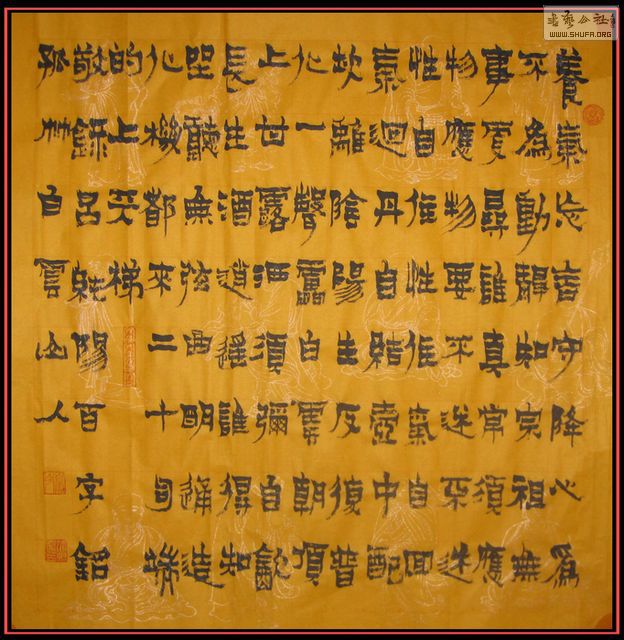 書藝公社
WWW.SHUFA.ORG
養氣忘言守降心爲
不為動靜知宗祖無
事更尋誰真常須應
物應物要不迷不迷
性自住性住氣自回
氣迴丹自結壺中配
坎離陰陽生反復普
化一聲靁白雲朝頂
上甘露洒須彌自飲
長生酒逍遙誰得知
坐聽無弦曲明通造
化機都來二十句端
的上天梯
敬錄呂純陽百字銘
孤竹白雲山人